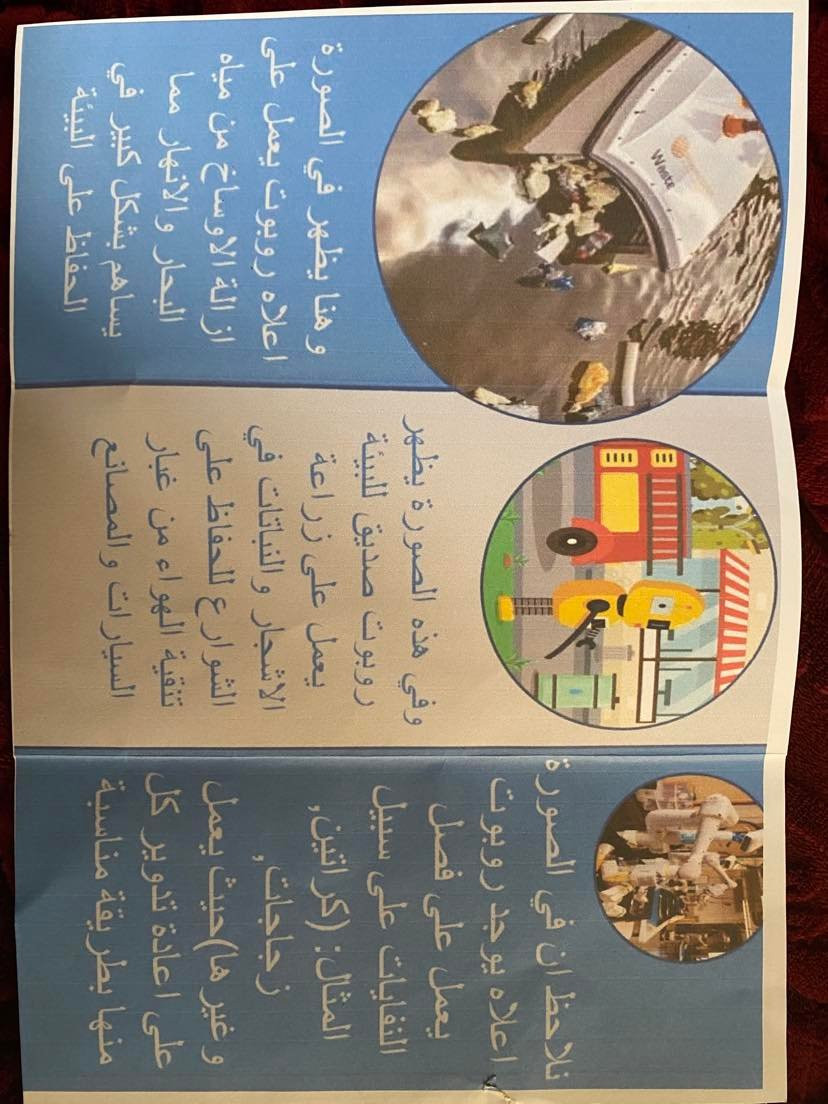 نلاحظ ان في الصورة
اعلاه يوجد روبوت
يعمل على فصل
النفايات على سبيل
المثال: (كراتين,
زجاجات,
وغيرها)حيث يعمل
على اعادة تدوير كل
منها بطريقة مناسبة
وفي هذه الصورة يظهر
روبوت صديق للبيئة
يعمل على زراعة
الاشجار والنباتات في
الشوارع للحفاظ على
تنقية الهواء من غبار
السيارات والمصانع
وهنا يظهر في الصورة
اعلاه روبوت يعمل على
ازالة الاوساخ من مياه
البحار والانهار مما
يساهم بشكل كبير في
الحفاظ على البيئة